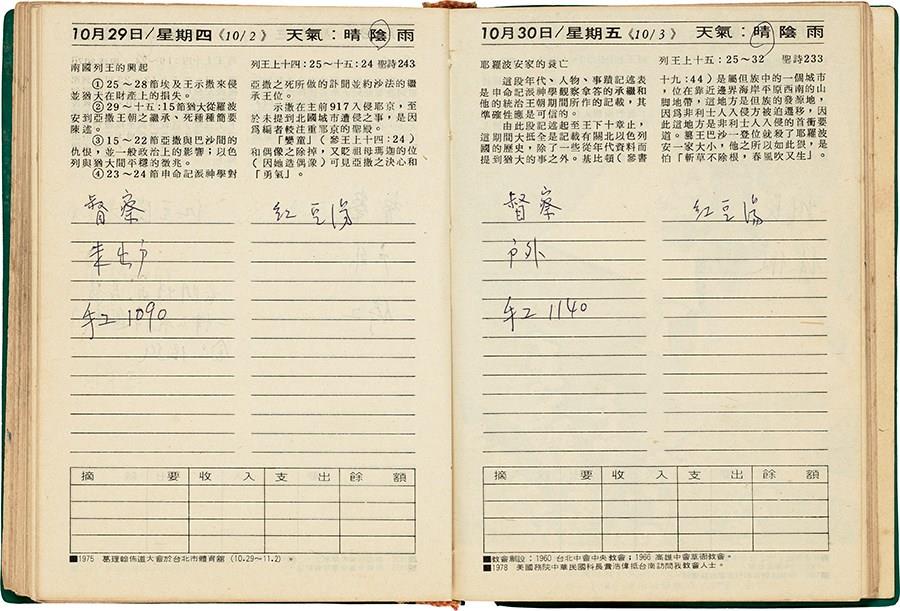 10月29日/星期四《10/2》 天氣：晴陰雨
南國列王的興起
①25～28節埃及王示撒來侵
並猶大在財產上的損失。
②29～十五：15節猶大從羅波
安到亞撒王朝之繼承、死種種簡要
陳述。
③15～22節亞撒與巴沙間的
仇恨，並一般政治上的影響；以色
列與猶大間平穩的徵兆。
④23～24節申命記派神學對
列王上十四：25～十五：24 聖詩243
亞撒之死所做的訃聞並約沙法的繼
承王位。
示撒在主前917入侵耶京，至
於未提到北國城市遭侵之事，是因
為編者較注重耶京的聖殿。
「孌童」（參王上十四：24）
和偶像之除掉，又貶祖母瑪迦的位
（因她造偶像）可見亞撒之決心和
「勇氣」。
督察
未出戶
手工 1090
紅豆湯
摘要 收入 支出 餘額
■1975 葛理翰佈道大會於台北市體育館（10.29～11.2）。
10月30日/星期五《10/3》 天氣：晴陰雨
耶羅波安家的衰亡
這段年代、人物、事蹟記述表
是申命記派神學觀察拿答的承繼和
他的統治王朝期間所作的記載，其
準確性應是可信的。
由此段記述起至王下十章止，
這期間大抵全是記載有關北以色列
國的歷史，除了一些從年代資料而
提到猶大的事之外。基比頓（參書
列王上十五：25～32 聖詩233
十九：44）是屬但族中的一個城市
，位在靠近邊界海岸平原西南的山
腳地帶，這地方是但族的發源地，
因為非利士人入侵方被迫遷移，因
此這地方是非利士人入侵的首衝要
道。墓王巴沙一登位就殺了耶羅波
安一家大小，他之所以如此狠，是
怕「斬草不除根，春風吹又生」。
督察
戶外
手工 1140
紅豆湯
摘要 收入 支出 餘額
■教會創設：1960 台北中會中央教會；1966 高雄中會草衙教會。
■1978 美國務院中華民國科長費浩偉抵台南訪問我教會人士。